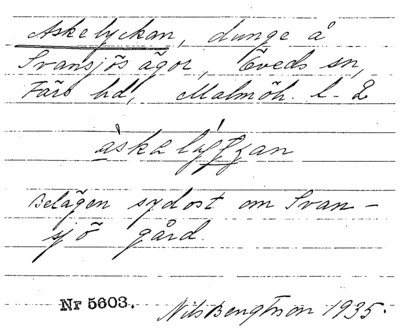 Askelyckan, dunge å
Svansjös ägor, Öveds sn,
Färs hd, Malmöh. l.
Belägen sydost om Svan-
sjö gård.
Nr 5603. Nils Bengtsson 1935.